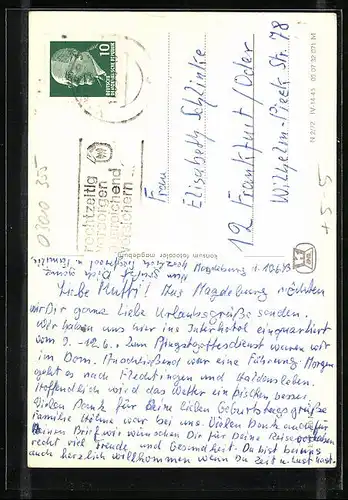 10
DEUTSCHE DEMOKRATISCHE REPUBLIK
rechtzeitig
konsum fotocolor magdeburg
N 2/72 IV-14-45 05 07 32 071 M
03010 355
+5-5
Frau
Elisabeth Schlinke
12 Frankfurt/Oder
Wilhelm-Pieck-Str. 78
Magdeburg
Liebe Mutti! Aus Magdeburg möchten
wir Dir ganz liebe Urlaubsgrüße senden.
Wir haben uns hier ins Interhotel einquartiert
vom 9.-12.6. Zum Pfingstgottesdienst waren wir
im Dom. Anschließend war eine Führung. Morgen
geht es nach Flechtingen und Haldensleben.
Hoffentlich wird das Wetter ein bißchen besser.
Vielen Dank für Deine lieben Geburtstagsgrüße
Familie Höhne war bei uns. Vielen Dank auch für
Deinen Brief, wir wünschen Dir für Deine Reise
recht viel Freude und Gesundheit. Du bist bei uns
auch herzlich willkommen wenn Du Zeit u. Lust hast.
Nun grüßt Dich ganz
herzlich